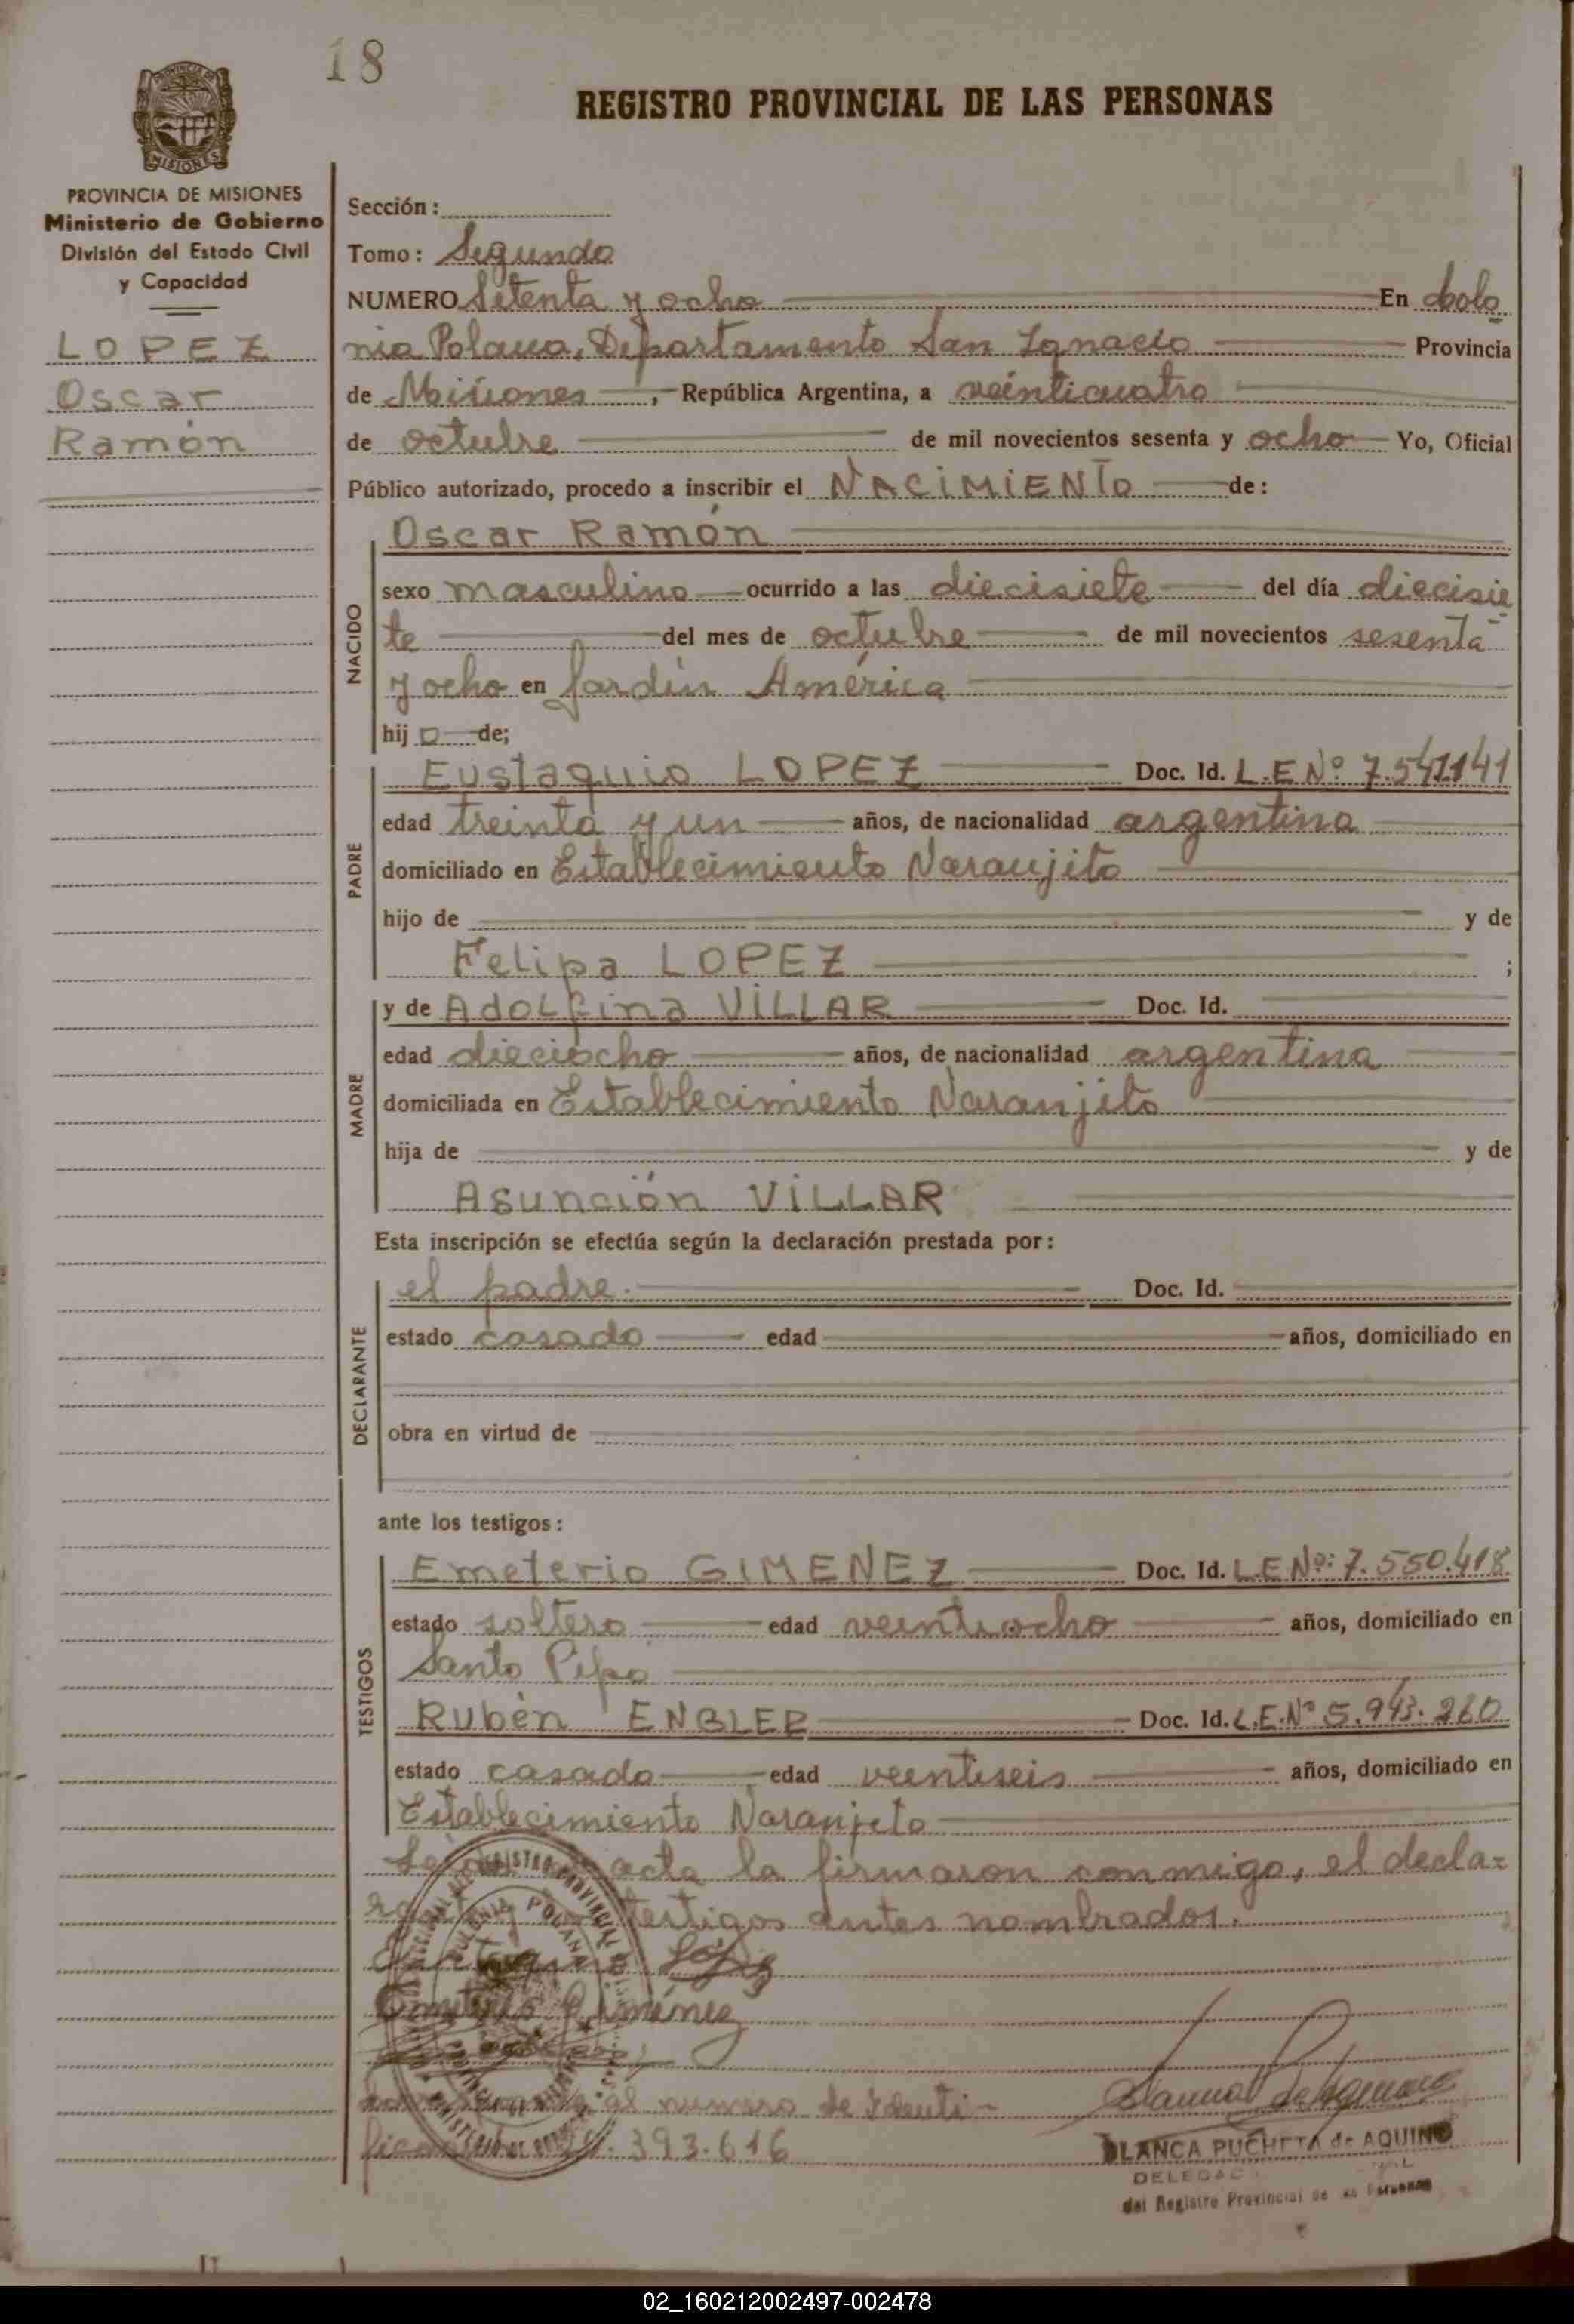 18
REGISTRO PROVINCIAL DE LAS PERSONAS
PROVINCIA DE MISIONES
Ministerio de Gobierno
División del Estado Civil
y Capacidad
LOPEZ
Oscar
Ramón
Sección:
Tomo: Segundo
NUMERO Setenta y ocho En Colo
nia Polana, Departamento San Ignacio Provincia
de Misiones, República Argentina, a veinticuatro
de octubre de mil novecientos sesenta y ocho Yo, Oficial
Público autorizado, procedo a inscribir el NACIMIENTO de:
NACIDO
Oscar Ramón
sexo masculino ocurrido a las diecisiete del día diecisie
te del mes de octubre de mil novecientos sesenta
y ocho en Jardín América
hijo de;
PADRE
Eustaquio LOPEZ Doc. Id. L.E Nº 7.541.141
edad treinta y un años, de nacionalidad argentina
domiciliado en Establecimiento Naranjito
hijo de y de
Felipa LOPEZ ;
MADRE
y de Adolfina VILLAR Doc. Id.
edad dieciocho años, de nacionalidad argentina
domiciliada en Establecimiento Naranjito
hija de y de
Asunción VILLAR
Esta inscripción se efectúa según la declaración prestada por:
DECLARANTE
el padre. Doc. Id.
estado casado edad años, domiciliado en
obra en virtud de
ante los testigos:
TESTIGOS
Emeterio GIMENEZ Doc. Id. L.E Nº: 7.550.418
estado soltero edad veintiocho años, domiciliado en
Santo Pipo
Rubén ENGLER Doc. Id. L.E.Nº 5.943.260
estado casado edad veintiseis años, domiciliado en
Establecimiento Naranjito
acta la firmaron conmigo, el decla-
testigos antes nombrados.
López
Giménez
al numero de Identi-
393.616
BLANCA PUCHETA de AQUINO
del Registro Provincial de las Personas
02_160212002497-002478